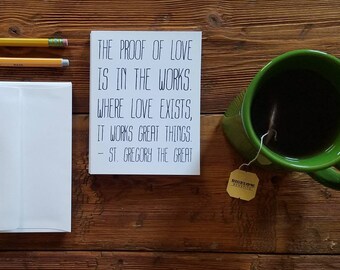 THE PROOF OF LOVE
IS IN THE WORKS.
WHERE LOVE EXISTS,
IT WORKS GREAT THINGS.
– ST. GREGORY THE GREAT